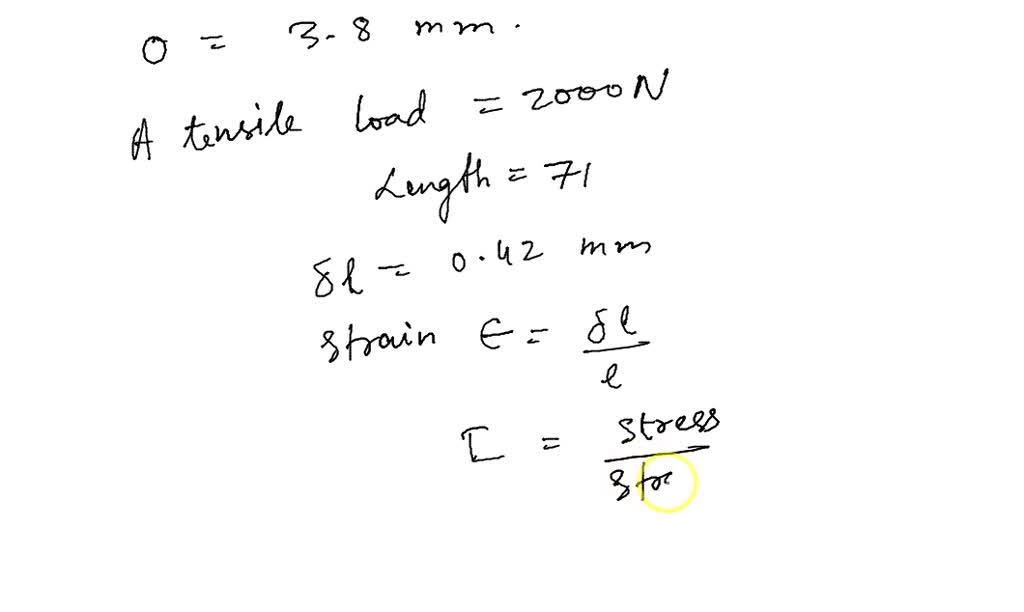 0 = 3.8 mm.
A tensile load = 2000N
Length = 71
δl = 0.42 mm
strain ϵ = δl / l
E = stress / stra